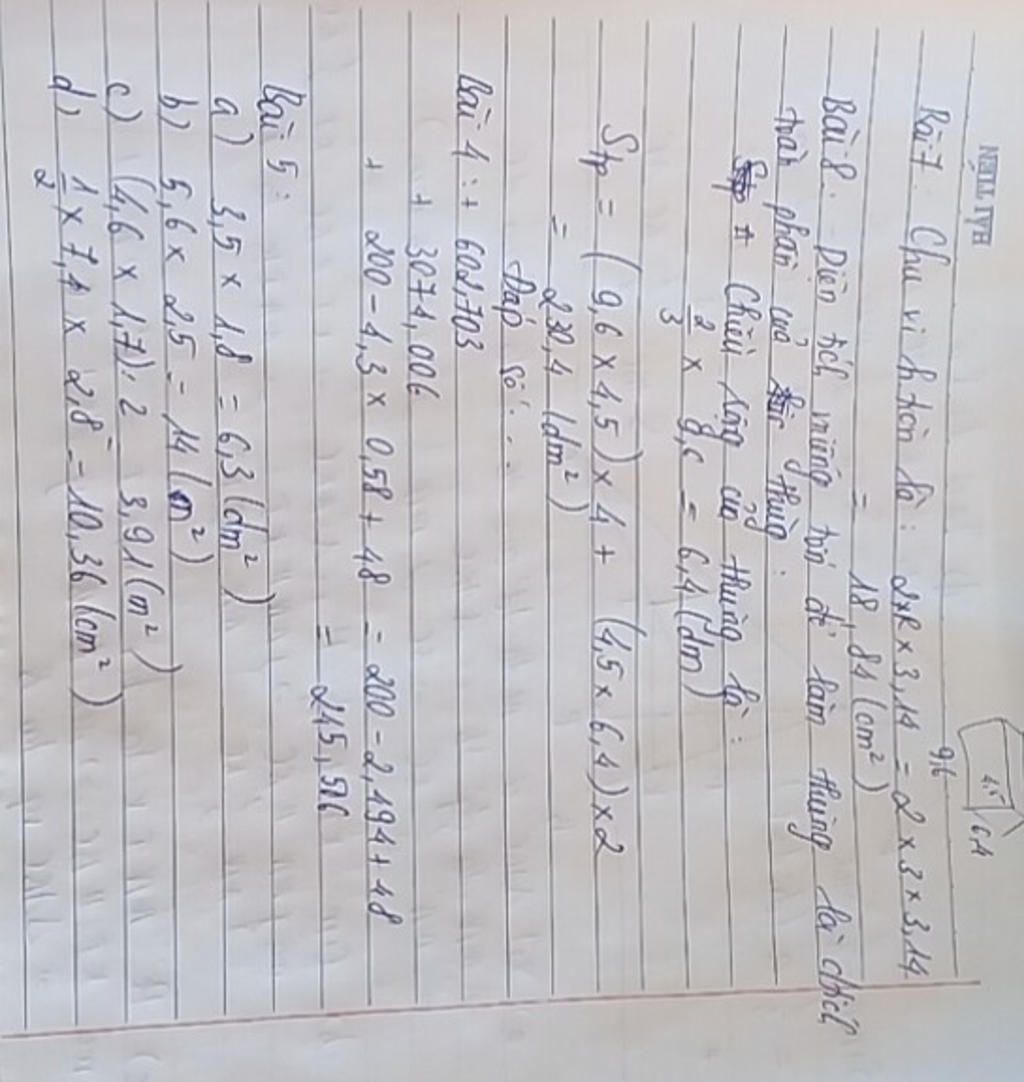 HẢI TIẾN
4,5
6,4
9,6
Bài 7: Chu vi h tròn là: 2×R × 3,14 = 2 × 3 × 3,14
= 18,84 (cm²)
Bài 8: Diện tích miếng tôn để làm thùng là diện
toàn phần của thùng.
Chiều rộng của thùng là:
2/3 × 9,6 = 6,4 (dm)
Stp = (9,6 × 4,5) × 4 + (4,5 × 6,4) × 2
= 230,4 (dm²)
Đáp số: ...
Bài 4: + 602,703
+ 3074,006
+ 200 - 4,3 × 0,58 + 48 = 200 - 2,494 + 48
= 245,506
Bài 5:
a) 3,5 × 1,8 = 6,3 (dm²)
b) 5,6 × 2,5 = 14 (m²)
c) (4,6 × 1,7) : 2 = 3,91 (m²)
d) 1/2 × 7,4 × 2,8 = 10,36 (cm²)